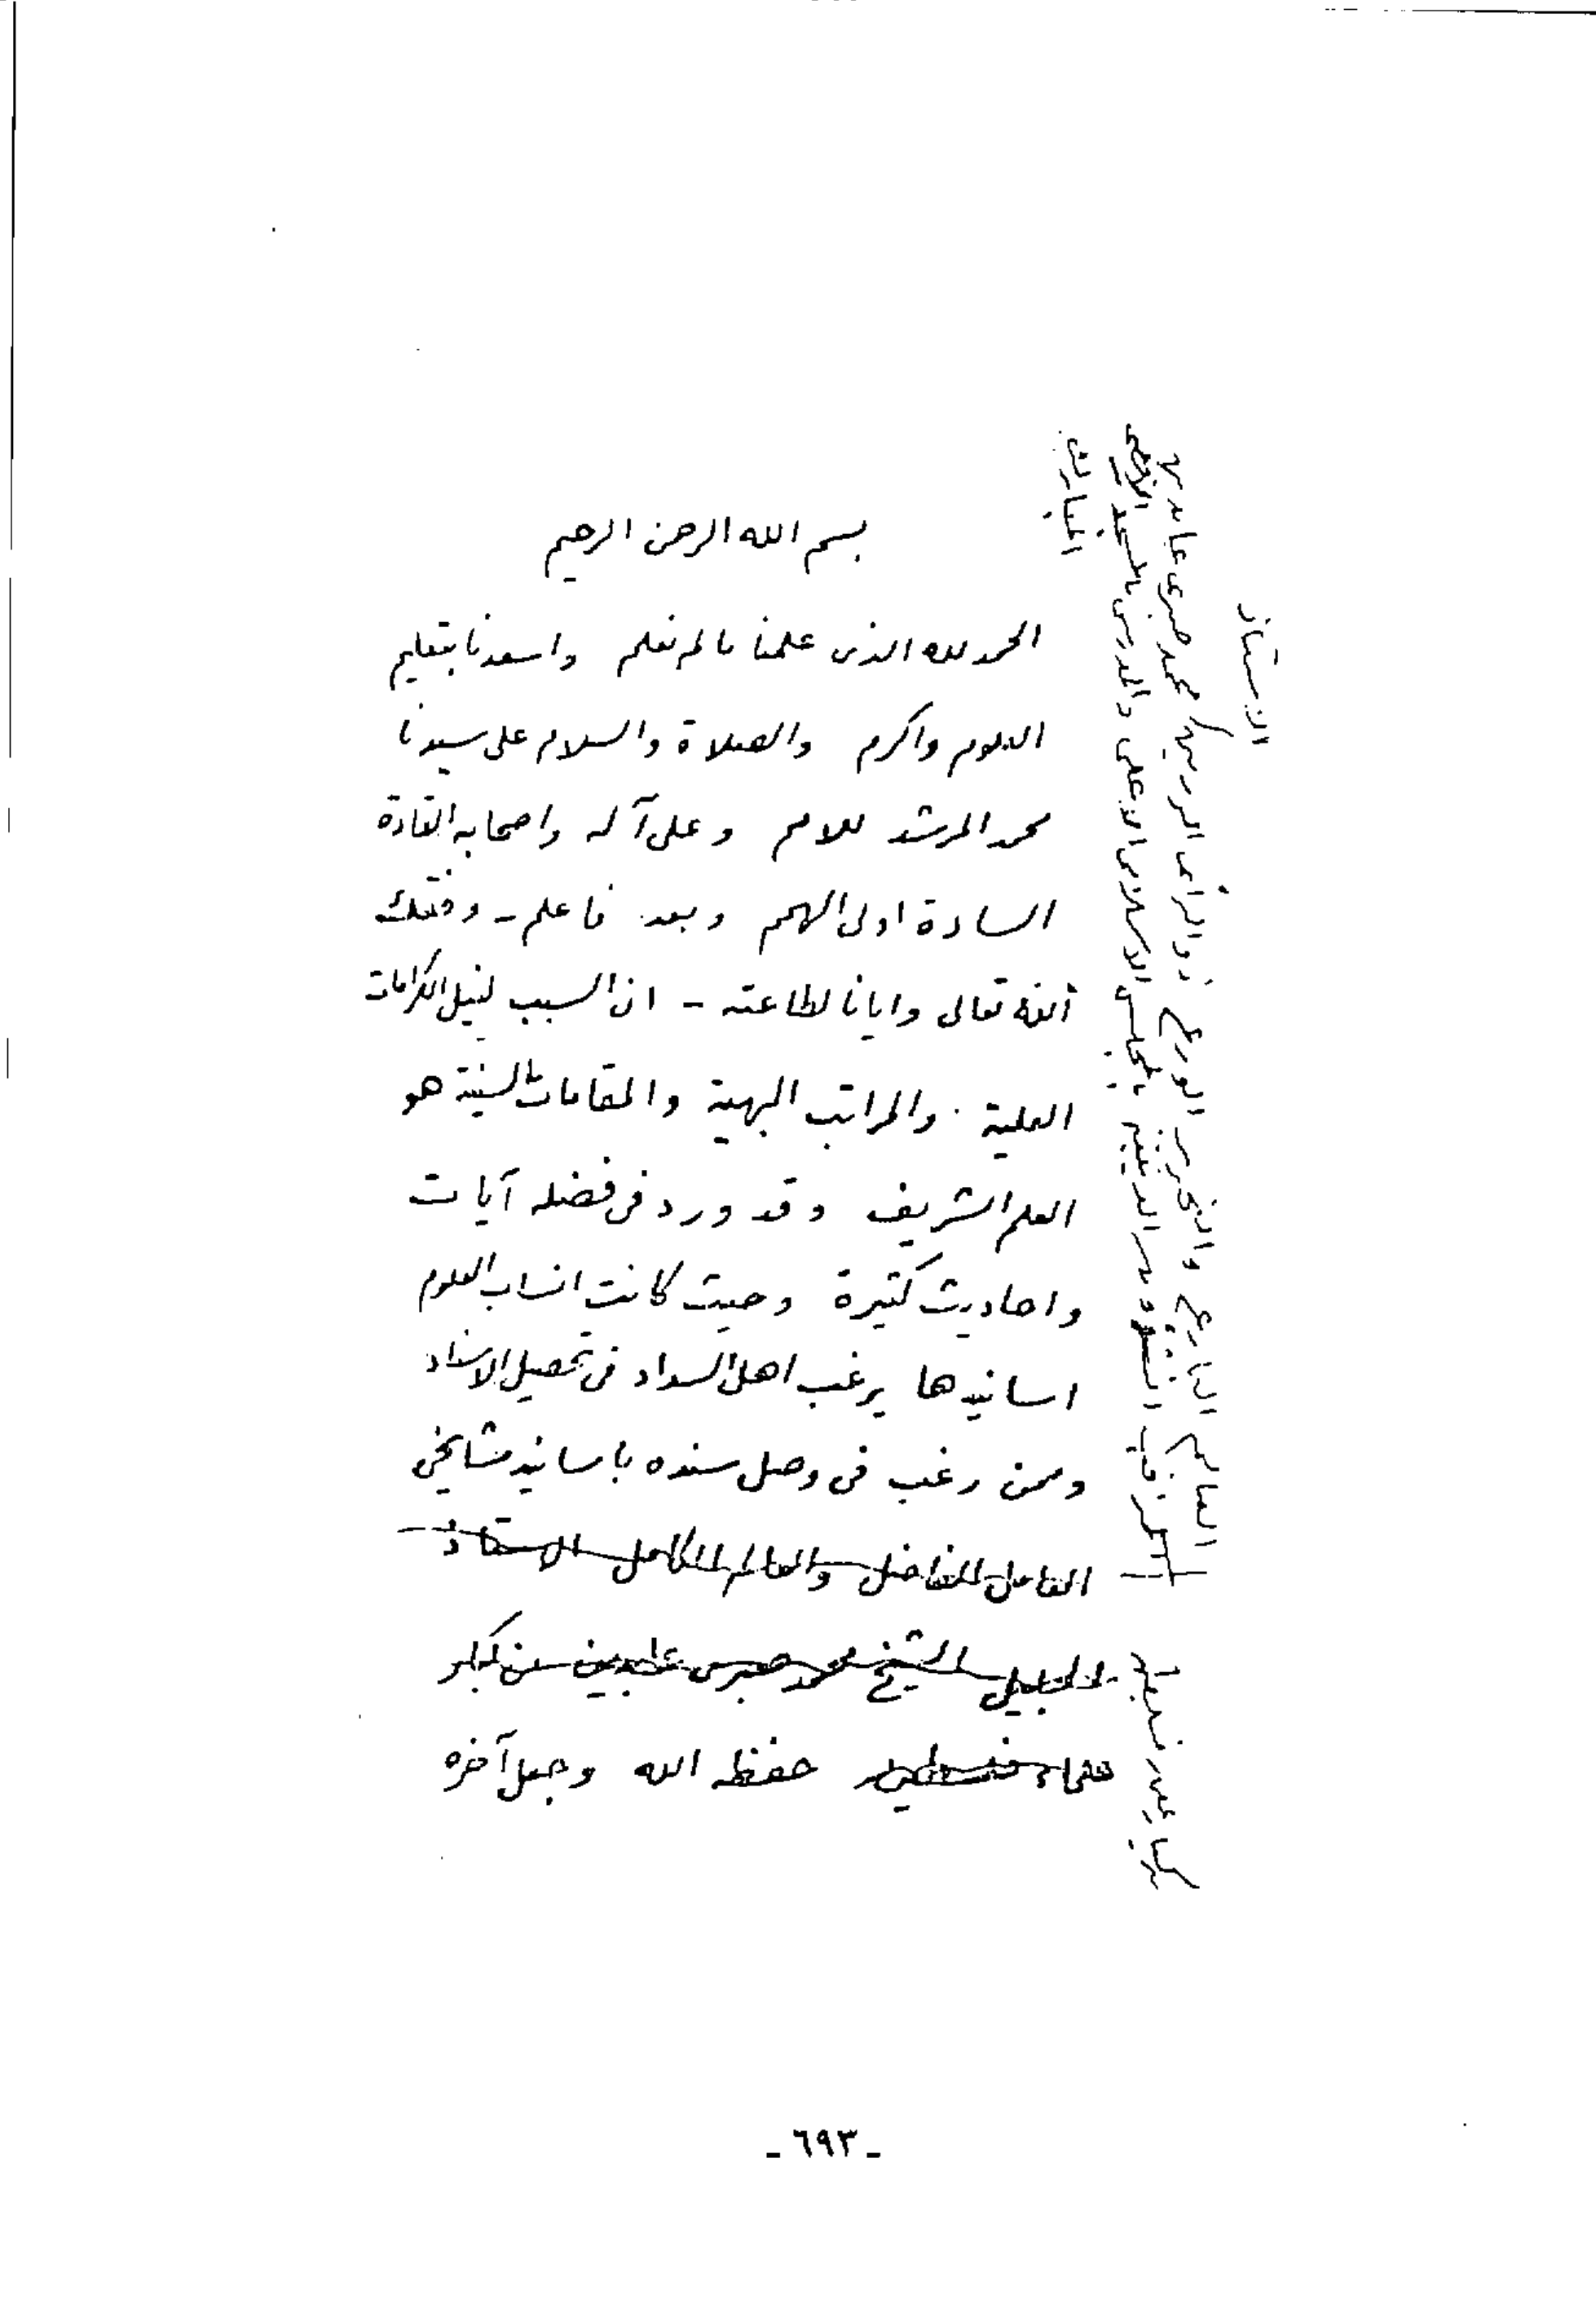 بسم الله الرحمن الرحيم
الحمد لله الذى علمنا ما لم نعلم واسعدنا بتعليم
العلوم واكرم والصلاة والسلام على سيدنا
محمد المرشد للامم وعلى آله واصحابه القادة
السادة اولى الهمم وبعد فاعلم - وفقك
الله تعالى وايانا لطاعته - ان السبب لنيل الكرامات
العلية والمراتب البهية والمقامات السنية هو
العلم الشريف وقد ورد فى فضله آيات
واحاديث كثيرة وحيث كانت انساب العلوم
اسانيدها يرغب اهل السداد فى تحصيل الاسناد
وممن رغب فى وصل سنده باسانيد مشايخى
الفاضل والعالم الكامل الاستاذ
الجليل الشيخ محمد صبرى عابدين من كبار
علماء فلسطين حفظه الله وجعل آخره
الاستاذ
العالم البارع والنحرير الورع ذو الرأى الرزين محمد صبرى عابدين
بالمجلس الاسلامى الاعلى والمدرس بالمسجد الاقصى
المبارك
- ٦٩٣ -